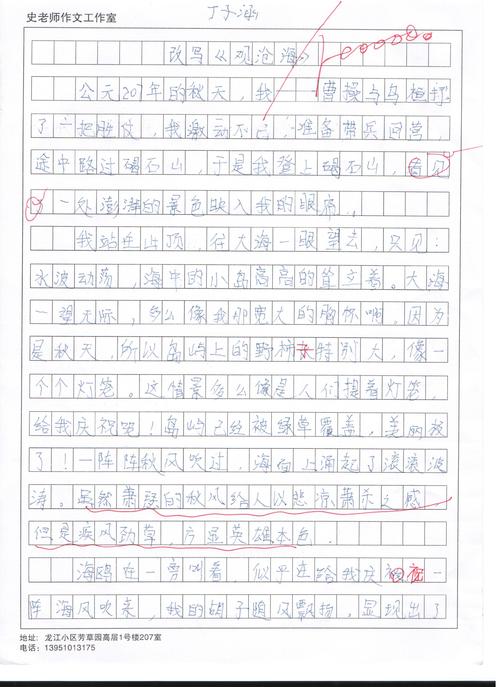 史老师作文工作室
丁子涵
改写《观沧海》
公元207年的秋天，我——曹操与乌桓打
了一把胜仗，我激动不已，准备带兵回营，
途中路过碣石山，于是我登上碣石山，看见
一处澎湃的景色映入我的眼帘。
我站在山顶，往大海一眼望去，只见：
水波动荡，海中的小岛高高的耸立着。大海
一望无际，多么像我那宽大的胸怀啊。因为
是秋天，所以岛屿上的野柿特别大，像一
个个灯笼。这情景多么像是人们提着灯笼，
给我庆祝呢！岛屿已经被绿草覆盖，美丽极
了！一阵阵秋风吹过，海面上涌起了滚滚波
涛。虽然萧瑟的秋风给人以悲凉萧杀之感，
但是疾风劲草，方显英雄本色。
海鸥在一旁叫着，似乎在给我庆祝
阵海风吹来，我的胡子随风飘扬，显现出了
地址：龙江小区芳草园高层1号楼207室
电话：13951013175